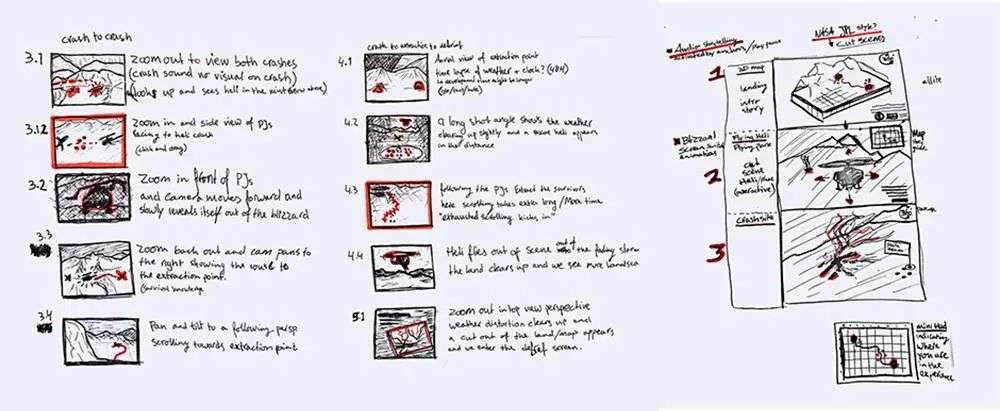 crash to crash
3.1
Zoom out to view both crashes
(crash sound no visual on crash)
looks up and sees heli in the mist
3.12
Zoom in and side view of PJs
racing to heli crash
(click and drag)
3.2
Zoom in front of PJs
and camera moves forward and
slowly reveals itself out of the blizzard
3.3
Zoom back out and cam pans to
the right showing the route to
the extraction point.
3.4
Pan and tilt to a following persp
scrolling towards extraction point
crash to extraction to debrief
4.1
Aerial view of extraction point
time lapse of weather + clock? (48H)
4.2
a long shot angle shows the weather
clearing up slightly and a heli appears
in the distance
4.3
following the PJs extract the survivors
here scrolling takes extra long / more time
"exhausted scrolling kicks in"
4.4
Heli flies out of scene out of the fading storm
the land clears up and we see more landscape
5.1
Zoom out in top view perspective
weather distortion clears up and
a cut out of the land/map appears
and we enter the debrief screen.
NASA JPL style?
Cut scenes
1
3D map
landing
intro
story
Blizzard
animations
2
Flying Heli
cut
scene
(interactive)
Map
3
Crashsite
mini
indicating
where
you are
in the
experience